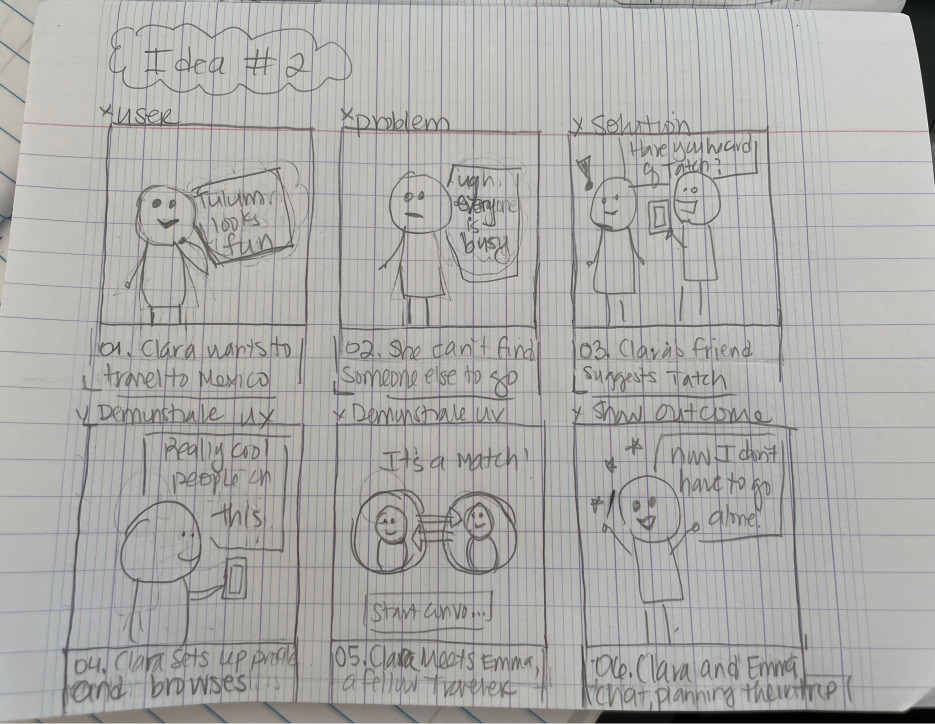 Idea #2
x user
Tulum
looks
fun
01. Clara wants to
travel to Mexico
x problem
ugh,
everyone
is
busy
02. She can't find
someone else to go
x Solution
Have you heard
of Tatch?
03. Clara's friend
suggests Tatch
x Demonstrate UX
Really cool
people on
this
04. Clara sets up profile
and browses...
x Demonstrate UX
It's a Match!
Start convo...
05. Clara Meets Emma,
a fellow traveler
x Show outcome
now I don't
have to go
alone.
06. Clara and Emma
chat, planning their trip!